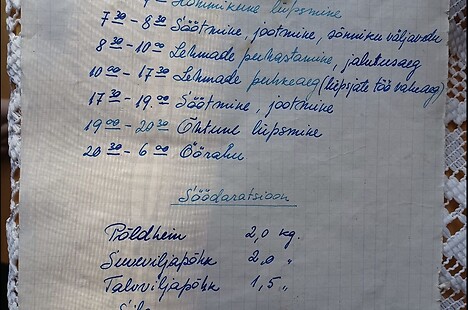 7 – Hommikune lüpsmine
7 30 – 8 30 Söötmine, jootmine, sõnniku väljavedu
8 30 – 10 00 Lehmade puhastamine, jalutusaeg
10 00 – 17 30 Lehmade puhkeaeg (lüpsjate töö vaheaeg)
17 30 – 19 00 Söötmine, jootmine
19 00 – 20 30 Õhtune lüpsmine
20 30 – 6 00 Öörahu
Söödaratsioon
Põldhein 2,0 kg.
Suviviljapõhk 2,0 "
Taliviljapõhk 1,5 "